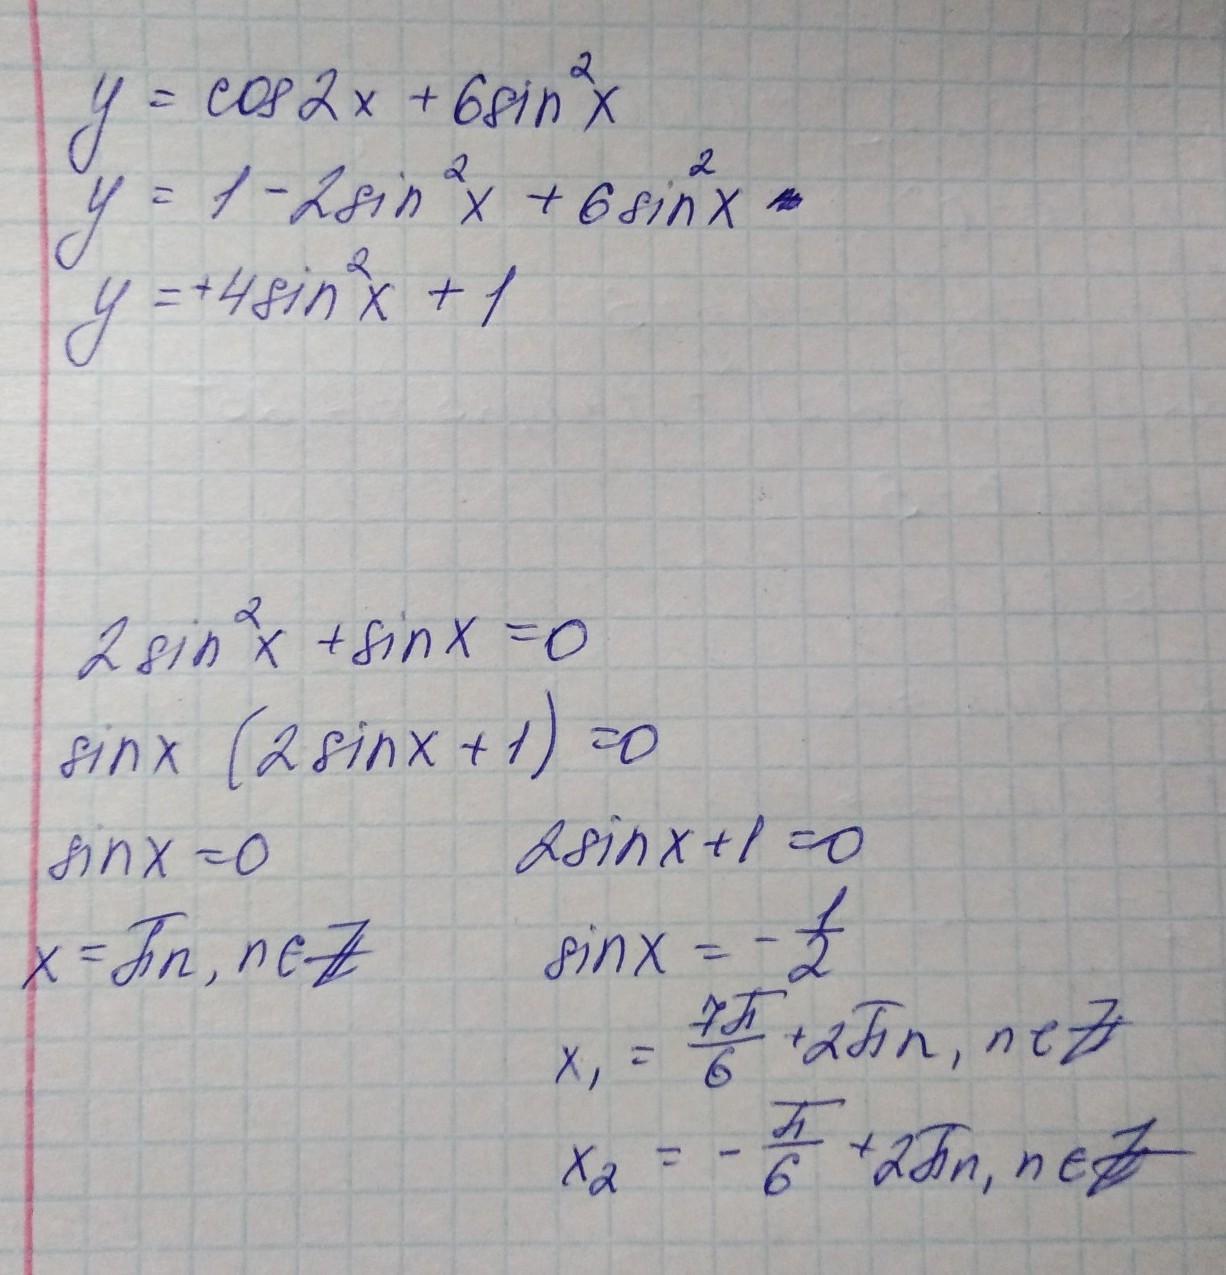 y = cos2x + 6sin²x
y = 1 - 2sin²x + 6sin²x
y = +4sin²x + 1
2sin²x + sinx = 0
sinx (2sinx + 1) = 0
sinx = 0 2sinx + 1 = 0
x = πn, n ∈ Z sinx = - 1/2
x₁ = 7π/6 + 2πn, n ∈ Z
x₂ = - π/6 + 2πn, n ∈ Z